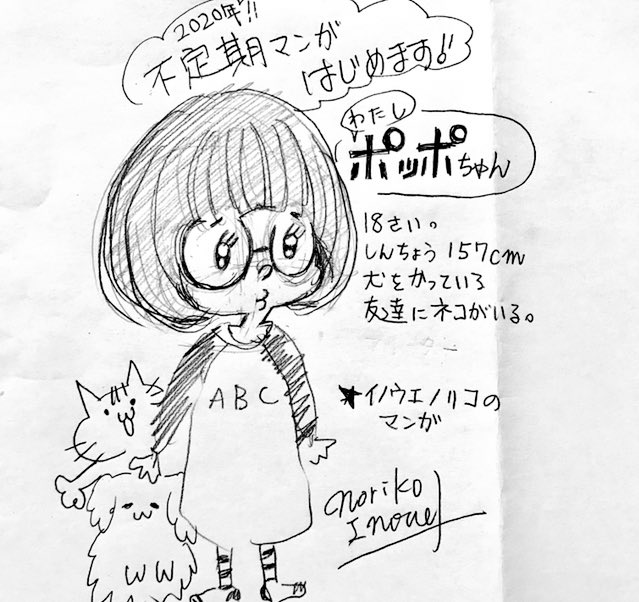 2020年!!
不定期マンガ
はじめます!!
わたし
ポッポちゃん
18さい。
しんちょう 157cm
犬をかっている
友達にネコがいる。
ABC
★イノウエノリコの
マンガ
noriko
Inoue
WW